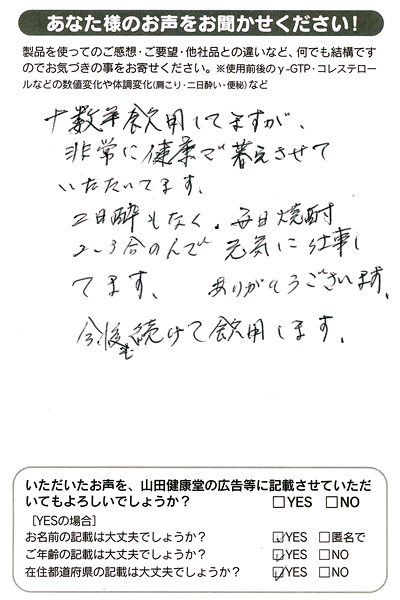 あなた様のお声をお聞かせください!
製品を使ってのご感想・ご要望・他社品との違いなど、何でも結構です
のでお気づきの事をお寄せください。※使用前後のγ-GTP・コレステロ
ールなどの数値変化や体調変化(肩こり・二日酔い・便秘)など
十数年飲用してますが、
非常に健康で暮えさせて
いただいてます。
二日酔もなく、毎日焼酎
2~3合のんで 元気に仕事し
てます。 ありがとうございます。
今後も続けて飲用します。
いただいたお声を、山田健康堂の広告等に記載させていただ
いてもよろしいでしょうか? □YES □NO
[YESの場合]
お名前の記載は大丈夫でしょうか? ☑YES □匿名で
ご年齢の記載は大丈夫でしょうか? ☑YES □NO
在住都道府県の記載は大丈夫でしょうか? ☑YES □NO